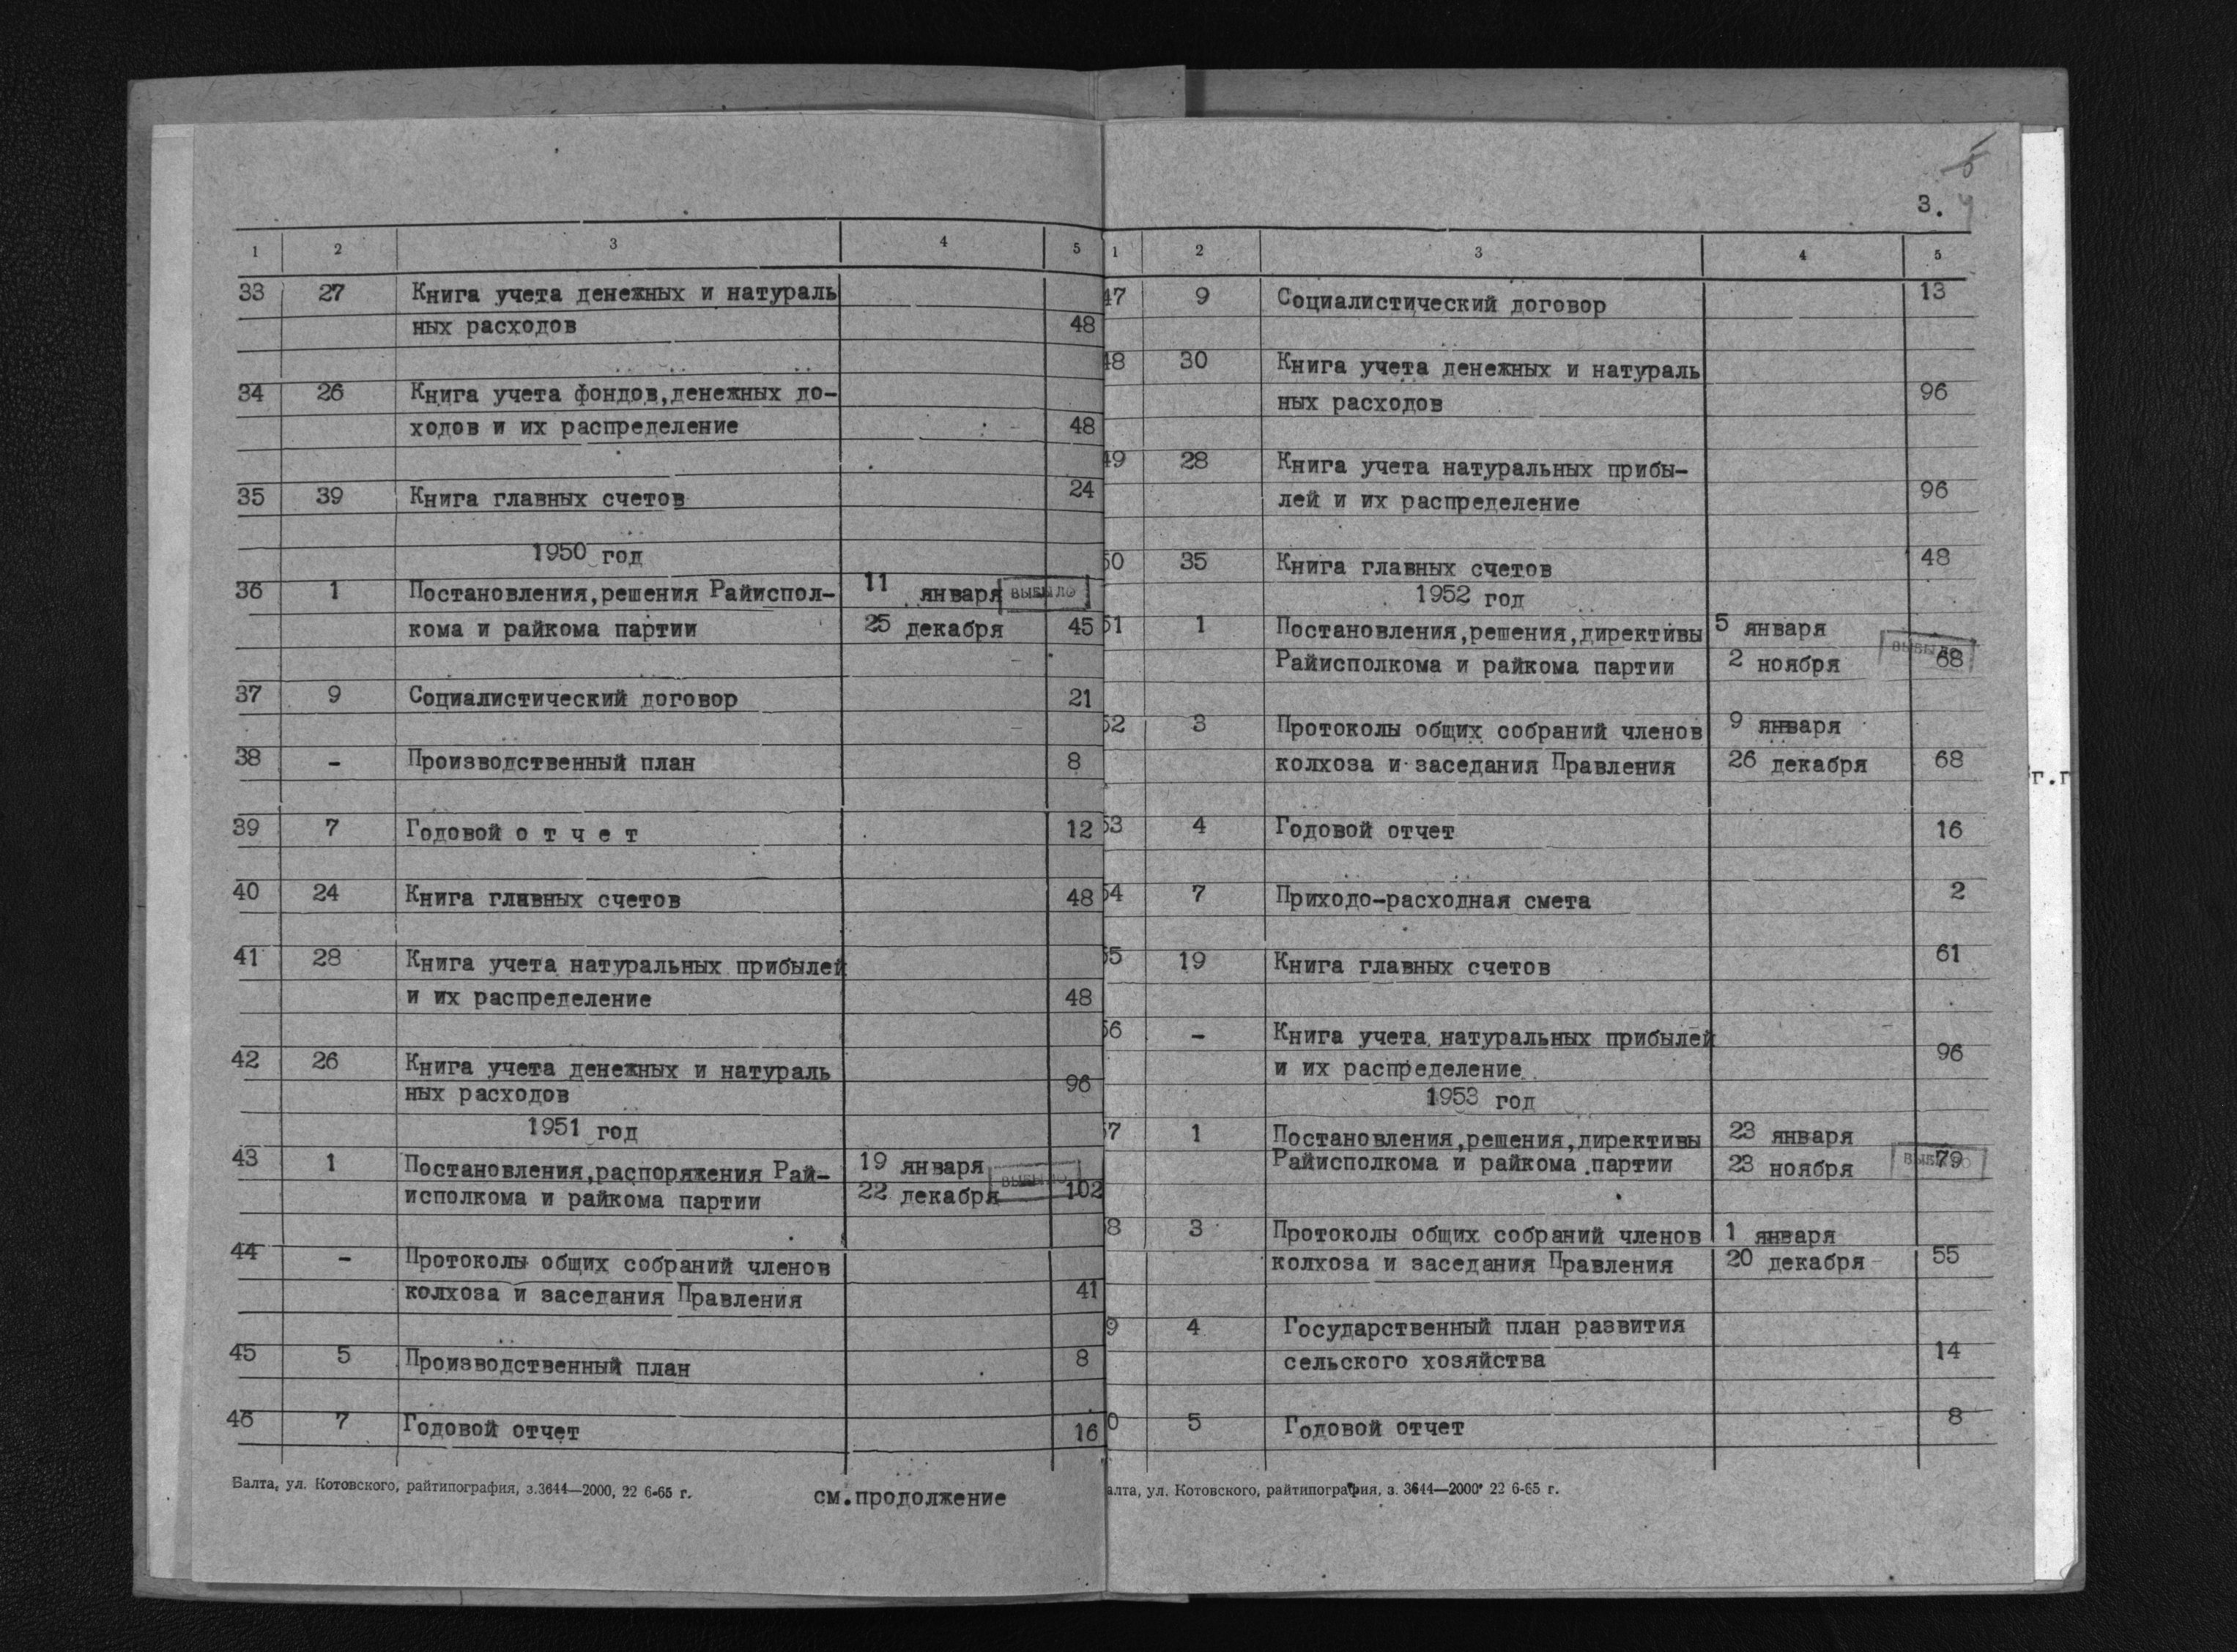 1 2 3 4 5
33 27 Книга учета денежных и натураль
ных расходов 48
34 26 Книга учета фондов,денежных до-
ходов и их распределение 48
35 39 Книга главных счетов 24
1950 год
36 1 Постановления,решения Райиспол- 11 января ВЫБЫЛО
кома и райкома партии 25 декабря 45
37 9 Социалистический договор 21
38 - Производственный план 8
39 7 Годовой о т ч е т 12
40 24 Книга главных счетов 48
41 28 Книга учета натуральных прибылей
и их распределение 48
42 26 Книга учета денежных и натураль
ных расходов 96
1951 год
43 1 Постановления,распоряжения Рай- 19 января ВЫБЫЛО
исполкома и райкома партии 22 декабря 102
44 - Протоколы общих собраний членов
колхоза и заседания Правления 41
45 5 Производственный план 8
46 7 Годовой отчет 16
Балта, ул. Котовского, райтипография, з.3644—2000, 22 6-65 г.
см.продолжение
3.
1 2 3 4 5
47 9 Социалистический договор 13
48 30 Книга учета денежных и натураль
ных расходов 96
49 28 Книга учета натуральных прибы-
лей и их распределение 96
50 35 Книга главных счетов 48
1952 год
51 1 Постановления,решения,директивы 5 января ВЫБЫЛО
Райисполкома и райкома партии 2 ноября 68
52 3 Протоколы общих собраний членов 9 января
колхоза и заседания Правления 26 декабря 68
53 4 Годовой отчет 16
54 7 Приходо-расходная смета 2
55 19 Книга главных счетов 61
56 - Книга учета натуральных прибылей
и их распределение 96
1953 год
7 1 Постановления,решения,директивы 23 января
Райисполкома и райкома партии 23 ноября ВЫБЫЛО 79
8 3 Протоколы общих собраний членов 1 января
колхоза и заседания Правления 20 декабря 55
9 4 Государственный план развития
сельского хозяйства 14
0 5 Годовой отчет 8
алта, ул. Котовского, райтипография, з. 3644—2000 22 6-65 г.
г.г